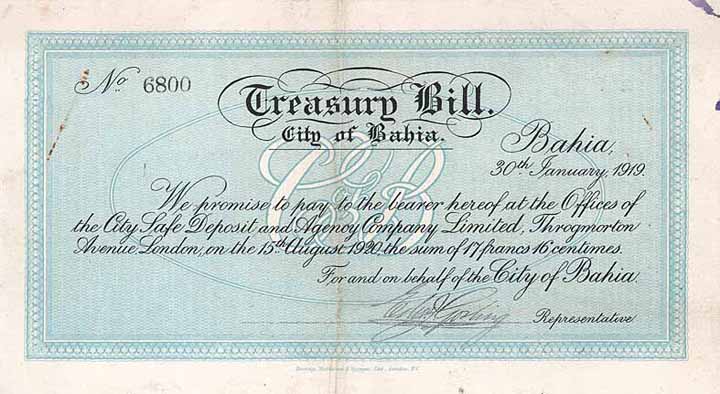 No. 6800
Treasury Bill.
City of Bahia.
Bahia,
30th January, 1919.
We promise to pay to the bearer hereof at the Offices of
the City Safe Deposit and Agency Company Limited, Throgmorton
Avenue London, on the 15th August 1920 the sum of 17 francs 16 centimes.
For and on behalf of the City of Bahia.
Representative
CB